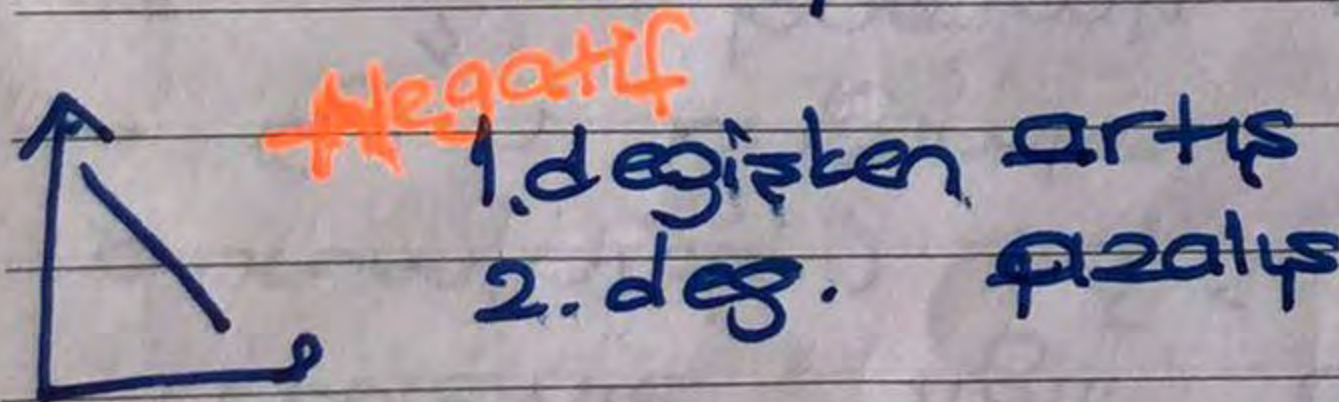 Negatif
1. değişken artış
2. değ. azalış